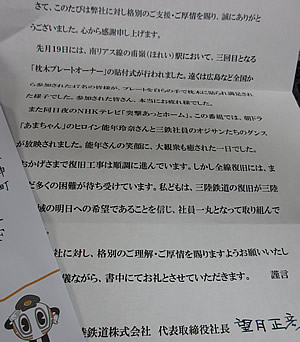 さて、このたびは弊社に対し格別のご支援・ご厚情を賜り、誠にありがと
うございました。心から感謝申し上げます。
先月19日には、南リアス線の甫嶺（ほれい）駅において、三回目となる
「枕木プレートオーナー」の貼付式が行われました。遠くは広島など全国か
ら参加された47名の皆様が、プレートを自らの手で枕木に貼られ満足され
た様子でした。参加された皆さん、本当にお疲れ様でした。
また同日夜のNHKテレビ「突撃あっとホーム」。この番組では、朝ドラ
「あまちゃん」のヒロイン能年玲奈さんと三鉄社員のオジサンたちのダンス
が放映されました。能年さんの笑顔に、大観衆も癒された一日でした。
おかげさまで復旧工事は順調に進んでいます。しかし全線復旧には、ま
だ多くの困難が待ち受けています。私どもは、三陸鉄道の復旧が三陸
域の明日への希望であることを信じ、社員一丸となって取り組んで
社に対し、格別のご理解・ご厚情を賜りますようお願いいたし
儀ながら、書中にてお礼とさせていただきます。 謹言
陸鉄道株式会社 代表取締役社長 望月正彦